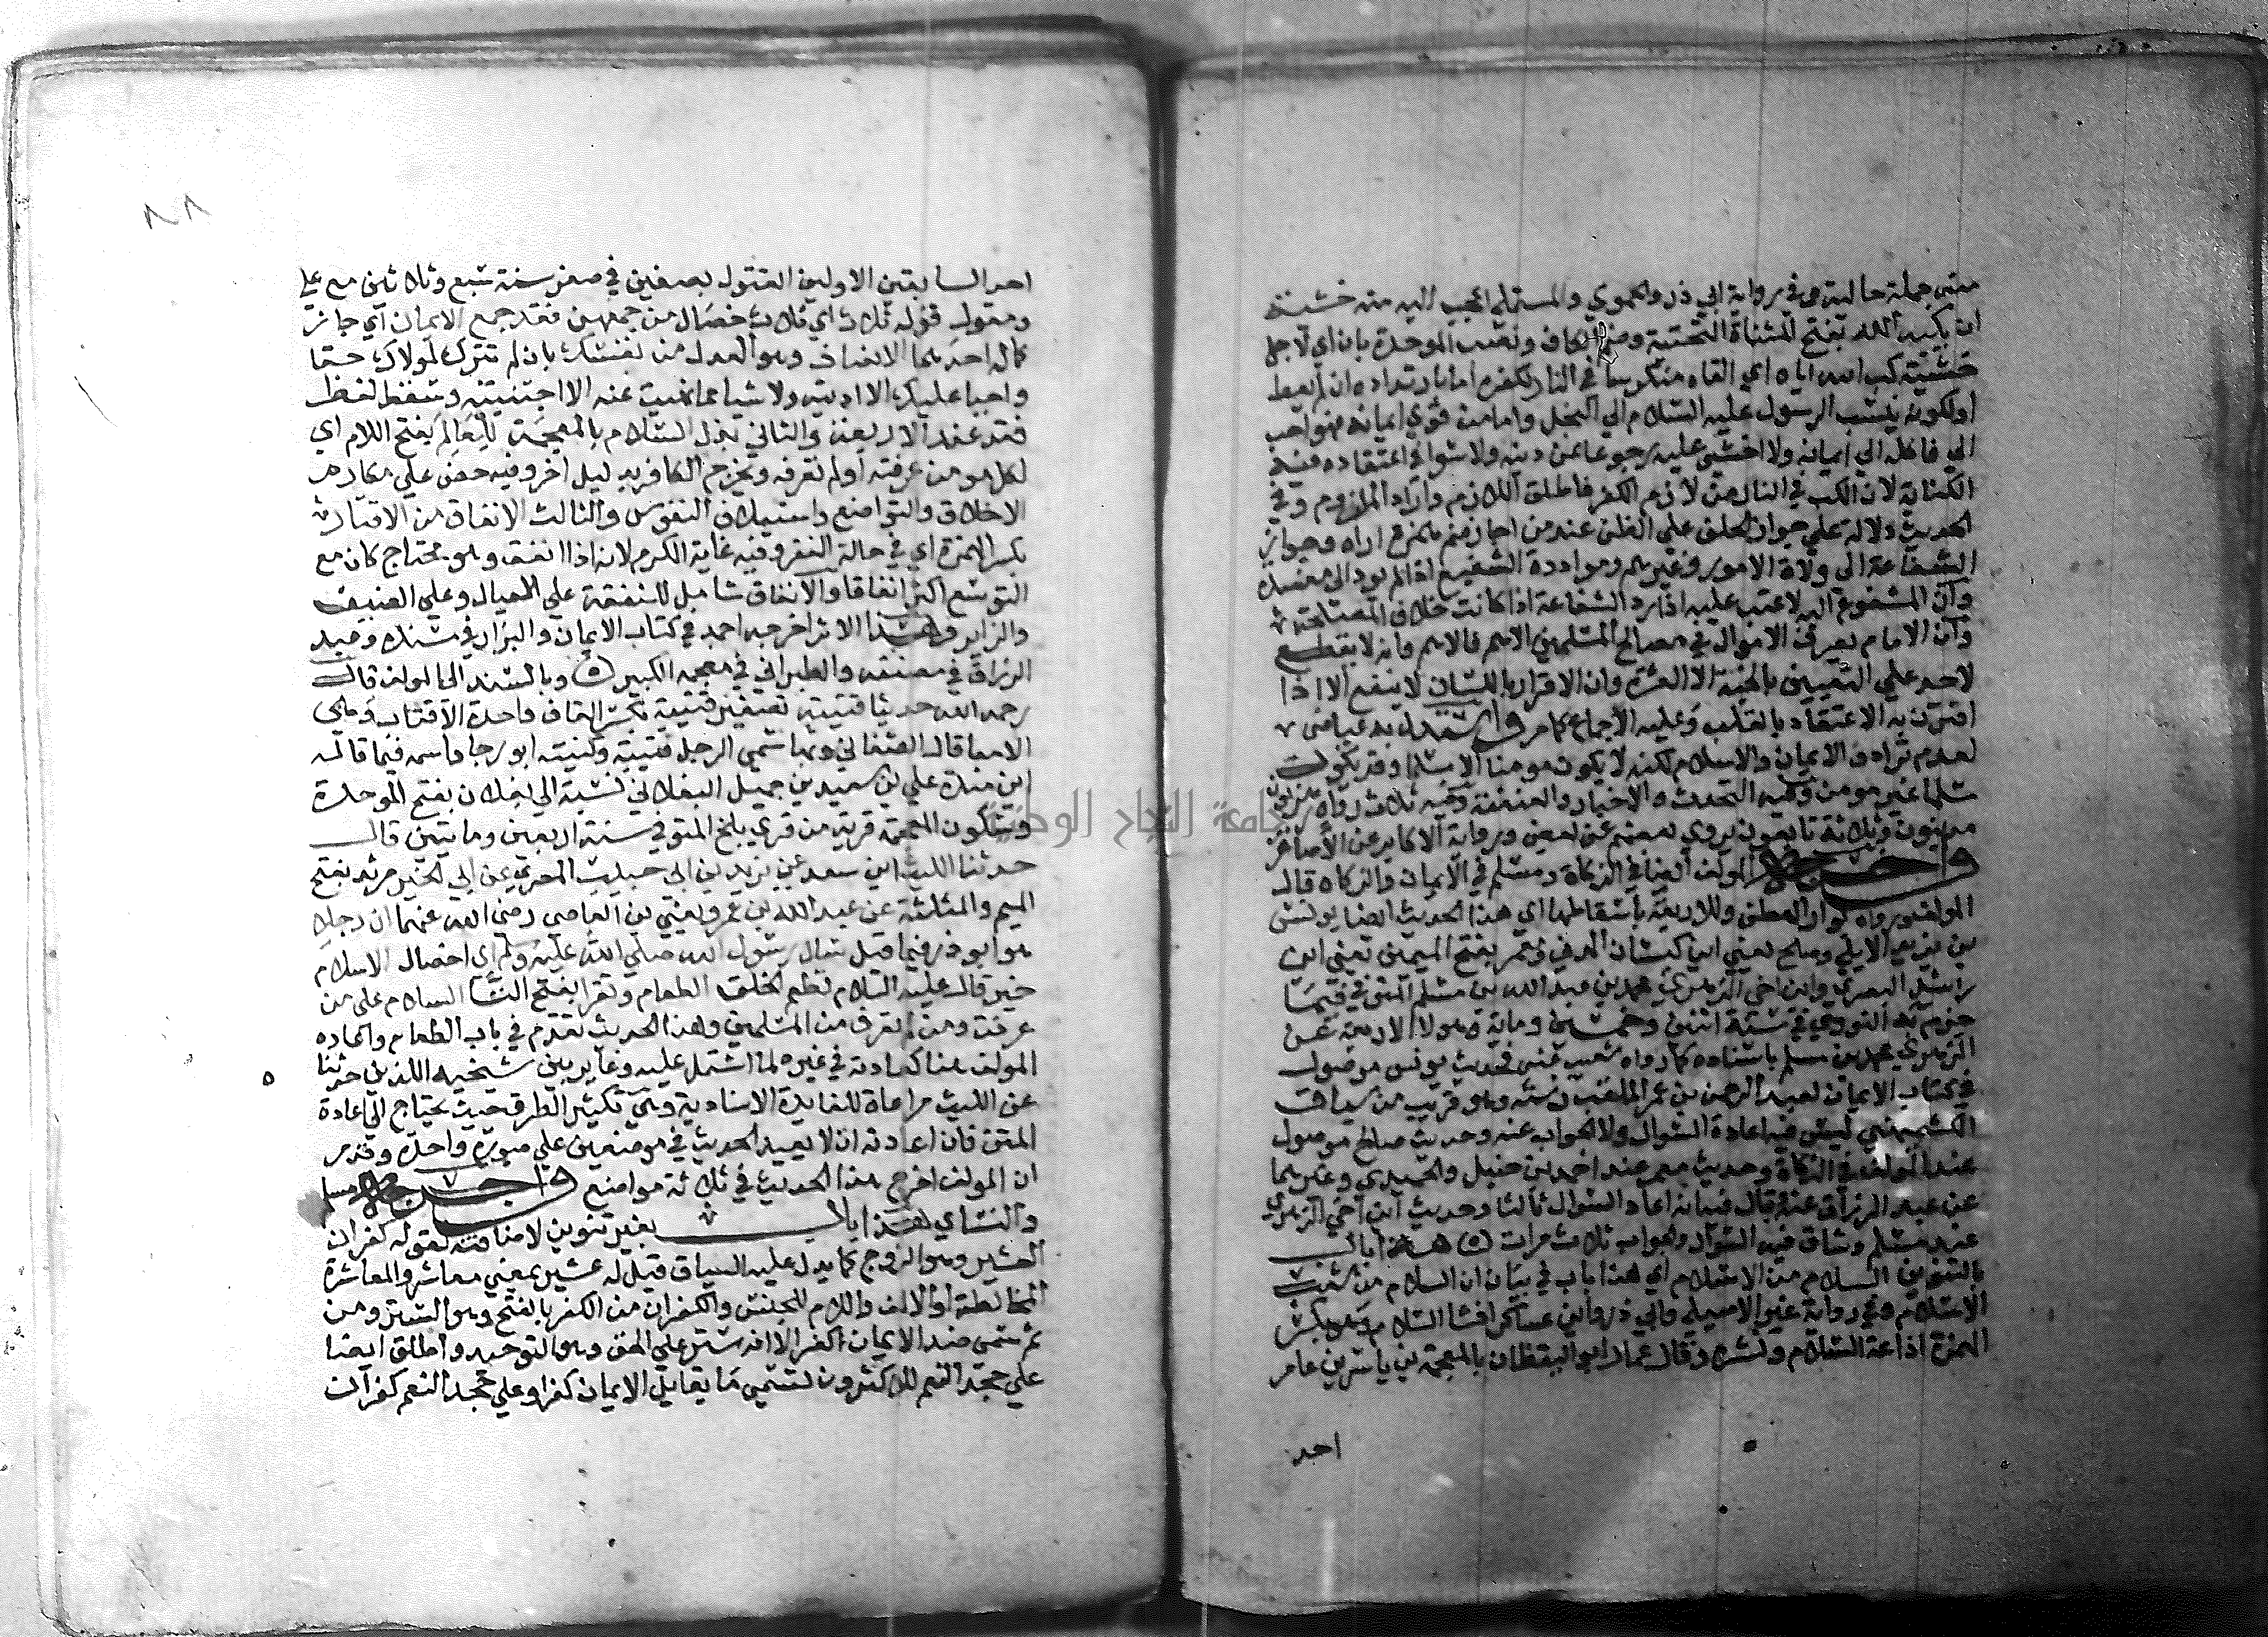 منه جملة حالية وفي رواية ابي ذر والحموي والمستملي اعجب اليه منه خشية
ان يكبه الله بفتح المثناة التحتية وضم الكاف ونصب الموحدة بان اي لاجل
خشية كب الله اياه اي القاه منكوسا في النار لكفره اما بارتداده ان لم يعط
او لكونه ينسب الرسول عليه السلام الي البخل واما من قوي ايمانه فهو احب
الي فاكله الي ايمانه ولا اخشى عليه رجوعا عن دينه ولا سوا في اعتقاده وفيه
الكناية لان الكب في النار من لازم الكفر فاطلق اللازم واراد الملزوم وفي
الحديث دلالة علي جواز الحلف علي الظن عند من اجاز ضم همزة اراه وجواز
الشفاعة الى ولاة الامور وغيرهم ومراددة الشفيع اذا لم يود الى مفسدة
وان المشفوع اليه لاعتب عليه اذا رد الشفاعة اذا كانت خلاف المصلحة
وان الامام يصرف الاموال في مصالح المسلمين الاهم فالاهم وانه لا يقطع
لاحد علي التعيين بالجنة الا العشرة وان الاقرار باللسان لا ينفع الا اذا
اقترن به الاعتقاد بالقلب وعليه الاجماع كما مر واستدل به عياض
لعدم ترادف الايمان والاسلام لكنه لا يكون مومنا الا مسلما وقد يكون
مسلما غير مومن وفيه التحديث والاخبار والعنعنة وفيه ثلاثة رواة زهريون
مدنيون وثلاثة تابعيون يروي بعضهم عن بعض ورواية الاكابر عن الاصاغر
واخرجه المولف ايضا في الزكاة ومسلم في الايمان والزكاه قال
المولف ورواه بواو العطف وللاربعة باسقاطها اي هذا الحديث ايضا يونس
بن يزيد الايلي وصالح يعني ابن كيسان المدني ومعمر بفتح الميمين يعني ابن
راشد البصري وابن اخي الزهري محمد بن عبد الله بن مسلم المتوفي فيما
جزم به النووي في سنة اثنين وخمسين وماية وهولا الاربعة عن
الزهري محمد بن مسلم باسناده كما رواه شعيب عنه فحديث يونس موصول
في كتاب الايمان لعبد الرحمن بن عمر الملقب رسته وهو قريب من سياق
الكشميهني ليس فيه اعادة السوال ولا الجواب عنه وحديث صالح موصول
عند المولف في الزكاة وحديث معمر عند احمد بن حنبل والحميدي وغيرهما
عن عبد الرزاق عنه وقال فيه انه اعاد السوال ثالثا وحديث ابن اخي الزهري
عند مسلم وساق فيه السوال والجواب ثلاث مرات هذا باب
بالتنوين السلام من الاسلام اي هذا باب في بيان ان السلام من شعب
الاسلام وفي رواية غير الاصيلي وابي ذر وابن عساكر افشا السلام وهو بكسر
الهمزة اذاعة السلام ونشره وقال عمار ابو اليقظان بالمعجمة بن ياسر بن عامر
احد
٨٨
احد السابقين الاولين المقتول بصفين في صفر سنة سبع وثلاثين مع علي
ومقول قوله ثلاث اي ثلاث خصال من جمعهن فقد جمع الايمان اي جاز
كماله احدهما الانصاف وهو العدل من نفسك بان لم تترك لمولاك حقا
واجبا عليك الا اديته ولا شيا مما نهيت عنه الا اجتنبته وسقط لفظ
فقد عند الاربعة والثاني بذل السلام بالمعجمة للعالم بفتح اللام اي
لكل مومن عرفته او لم تعرفه وخرج الكافر بدليل اخر وفيه حض على مكارم
الاخلاق والتواضع واستيلاف النفوس والثالث الانفاق من الاقتار
بكسر الهمزة اي في حالة الفقر وفيه غاية الكرم لانه اذا انفق وهو محتاج كان مع
التوسع اكثر انفاقا والانفاق شامل للنفقة علي العيال وعلي الضيف
والزاير وهذا الاثر اخرجه احمد في كتاب الايمان والبزار في مسنده وعبد
الرزاق في مصنفه والطبراني في معجمه الكبير وبالسند الى المولف قال
رحمه الله حدثنا قتيبة تصغير قتبة بكسر القاف واحدة الاقتاب وهي
الامعا قال الصغاني وبها سمي الرجل قتيبة وكنيته ابو رجا واسمه فيما قاله
ابن مندة علي بن سعيد بن جميل البغلاني نسبة الي بغلان بفتح الموحدة
وسكون المعجمة قرية من قري بلخ المتوفي سنة اربعين ومايتين قال
حدثنا الليث ابن سعد عن يزيد بن ابي حبيب المصري عن ابي الخير مرثد بفتح
الميم والمثلثة عن عبد الله بن عمرو يعني بن العاصي رضي الله عنهما ان رجلا
هو ابو ذر فيما قيل سال رسول الله صلي الله عليه وسلم اي خصال الاسلام
خير قال عليه السلام تطعم الخلق الطعام وتقرا بفتح التا السلام على من
عرفت ومن لم تعرف من المسلمين وهذا الحديث تقدم في باب الطعام واعاده
المولف هنا كعادته في غيره لما اشتمل عليه وغاير بين شيخيه اللذين حدثنا
عن الليث مراعاة للفايدة الاسنادية وهي تكثير الطرق حيث يحتاج الي اعادة
المتن فان عادته ان لا يعيد الحديث في موضعين علي صورة واحدة وقد مر
ان المولف اخرج هذا الحديث في ثلاثة مواضع واخرجه مسلم
والنساي هذا باب بغير تنوين لاضافته لقوله كفران
العشير وهو الزوج كما يدل عليه السياق قيل له عشير بمعني معاشر والمعاشرة
المخالطة او الالف واللام للجنس والكفران من الكفر بالفتح وهو الستر ومن
ثم سمى ضد الايمان كفرا لانه ستر على الحق وهو التوحيد واطلق ايضا
علي جحد النعم لكن الاكثرون تسمي ما يقابل الايمان كفرا وعلي جحد النعم كفران
جامعة النجاح الوطنية